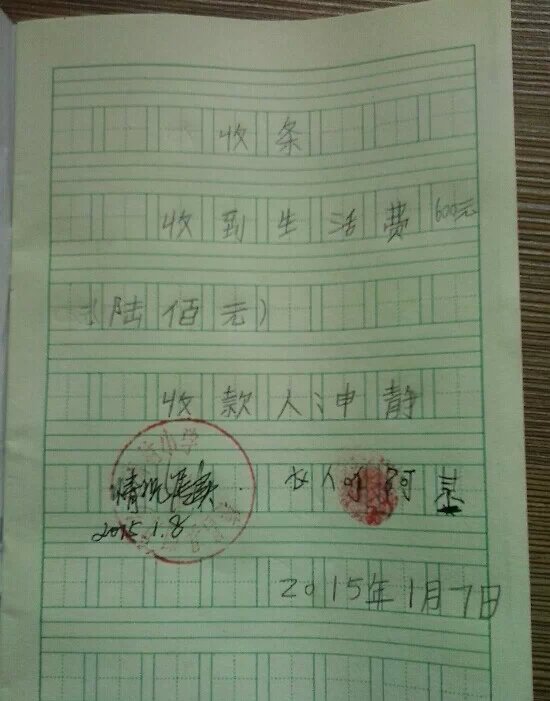 收条
收到生活费600元
(陆佰元)
收款人:申静
情况属实
2015.1.8
小学
2015年1月7日